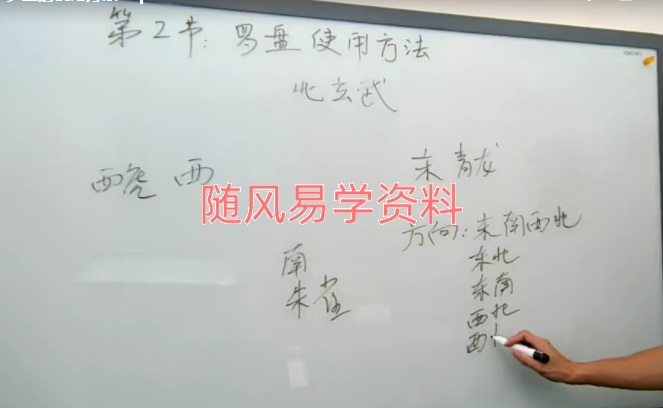 第2节:罗盘使用方法
北玄武
西虎 西
东青龙
随风易学资料
方向:东南西北
南
朱雀
东北
东南
西北
西